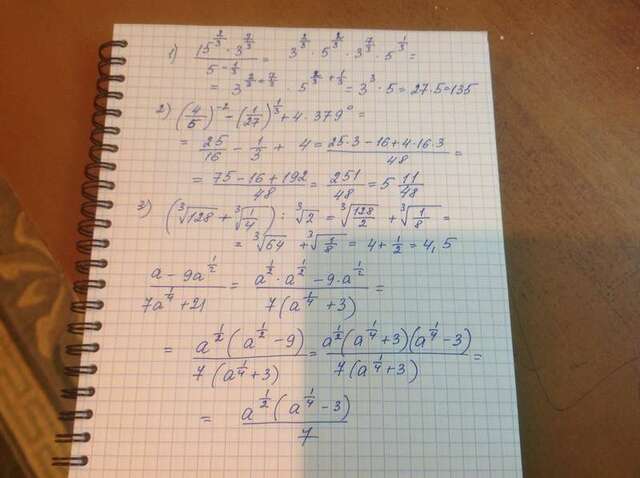 1) (15^(2/3) · 3^(7/3)) / 5^(-1/3) = 3^(2/3) · 5^(2/3) · 3^(7/3) · 5^(1/3) =
= 3^(2/3 + 7/3) · 5^(2/3 + 1/3) = 3^3 · 5 = 27·5=135
2) (4/5)^(-2) - (1/27)^(1/3) + 4 · 379^0 =
= 25/16 - 1/3 + 4 = (25·3 - 16 + 4·16·3)/48 =
= (75 - 16 + 192)/48 = 251/48 = 5 11/48
3) (∛128 + ∛(1/4)) : ∛2 = ∛(128/2) + ∛(1/8) =
= ∛64 + ∛(1/8) = 4 + 1/2 = 4,5
(a - 9a^(1/2)) / (7a^(1/4) + 21) = (a^(1/2) · a^(1/2) - 9·a^(1/2)) / (7(a^(1/4) + 3)) =
= (a^(1/2)(a^(1/2) - 9)) / (7(a^(1/4) + 3)) = (a^(1/2)(a^(1/4) + 3)(a^(1/4) - 3)) / (7(a^(1/4) + 3)) =
= (a^(1/2)(a^(1/4) - 3)) / 7